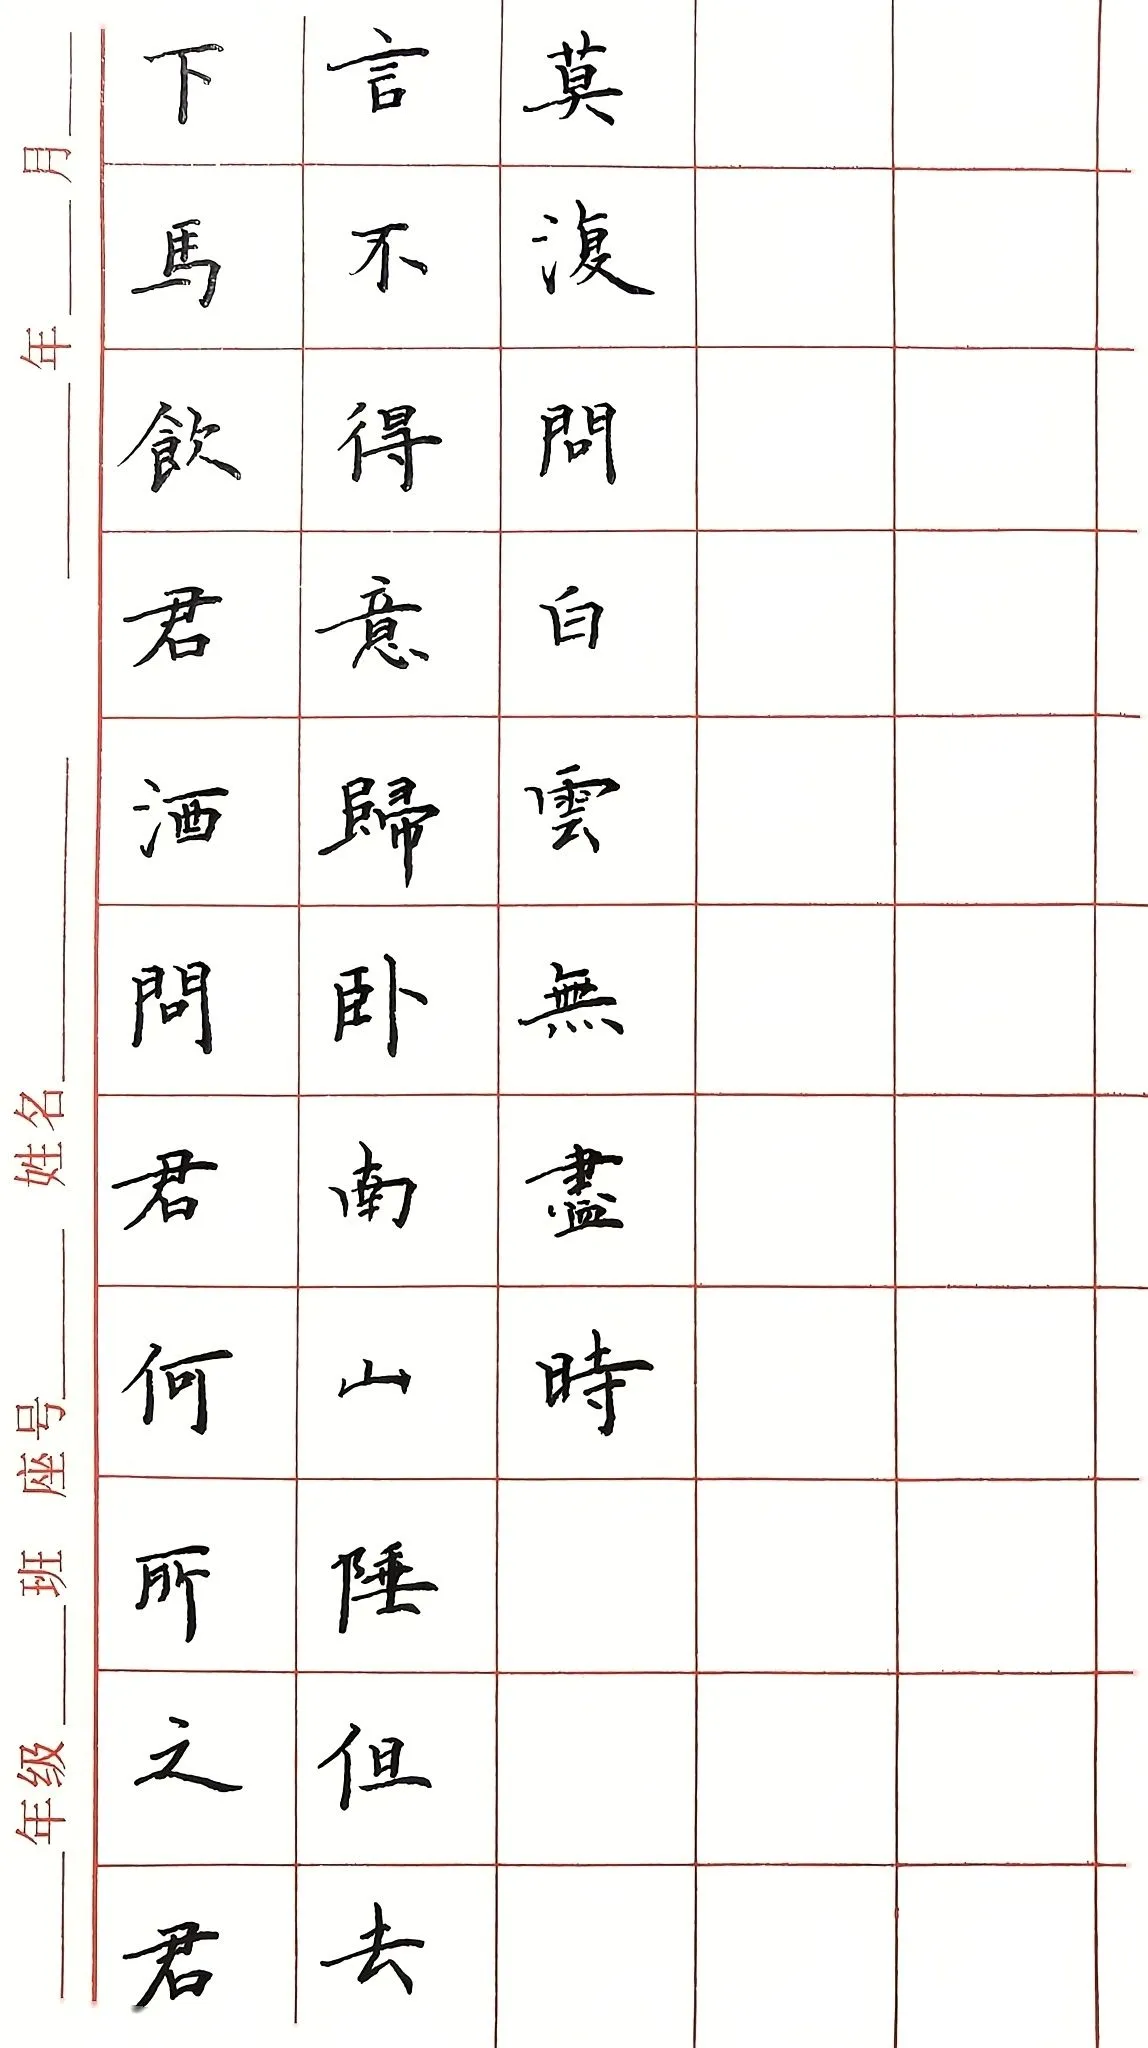 年级 班 座号 姓名 年 月
下馬飲君酒問君何所之君
言不得意歸卧南山陲但去
莫復問白雲無盡時